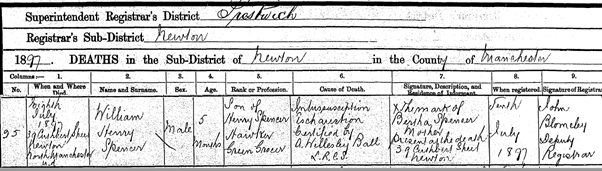 Superintendent Registrar's District Prestwich
Registrar's Sub-District Newton
1897. DEATHS in the Sub-District of Newton in the County of Manchester
Columns:— 1. 2. 3. 4. 5. 6. 7. 8. 9.
No. When and Where Died. Name and Surname. Sex. Age. Rank or Profession. Cause of Death. Signature, Description, and Residence of Informant. When registered. Signature of Registrar
95
Eighth
July
1897
39 Cuthbert Street
Newton
North Manchester
William
Henry
Spencer
Male
5
Months
Son of
Henry Spencer
Hawker
Green Grocer
Intussusception
Exhaustion
Certified by
A Hillesley Ball
L.R.C.S.
X The mark of
Bertha Spencer
Mother
Present at the death
39 Cuthbert Street
Newton
Tenth
July
1897
John
Blomeley
Deputy
Registrar